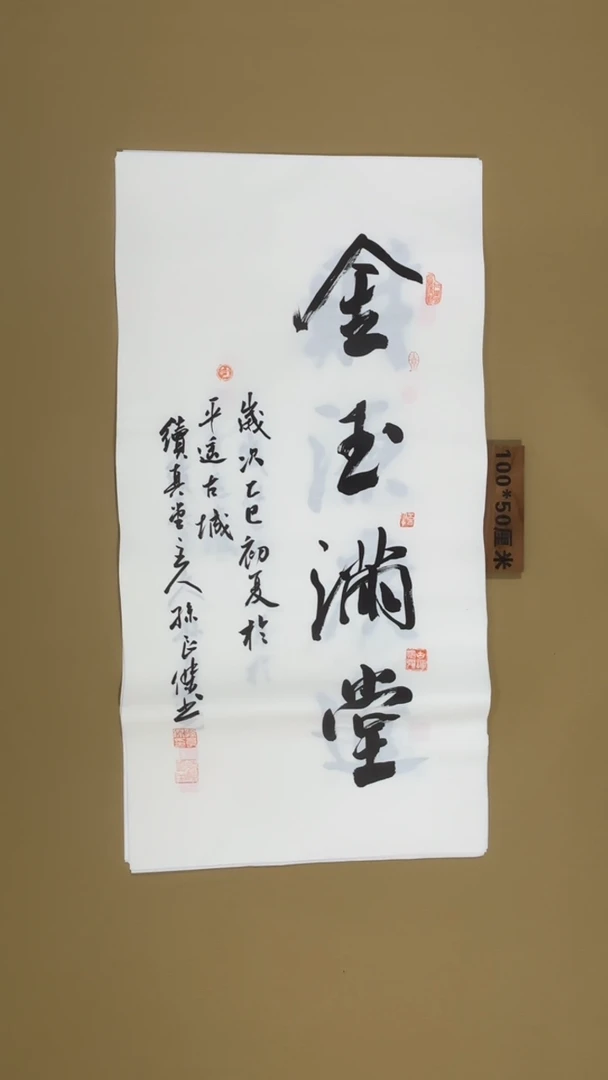 金玉满堂
歲次乙巳初夏於
平遥古城
續真堂主人孫正傑书
100*50厘米